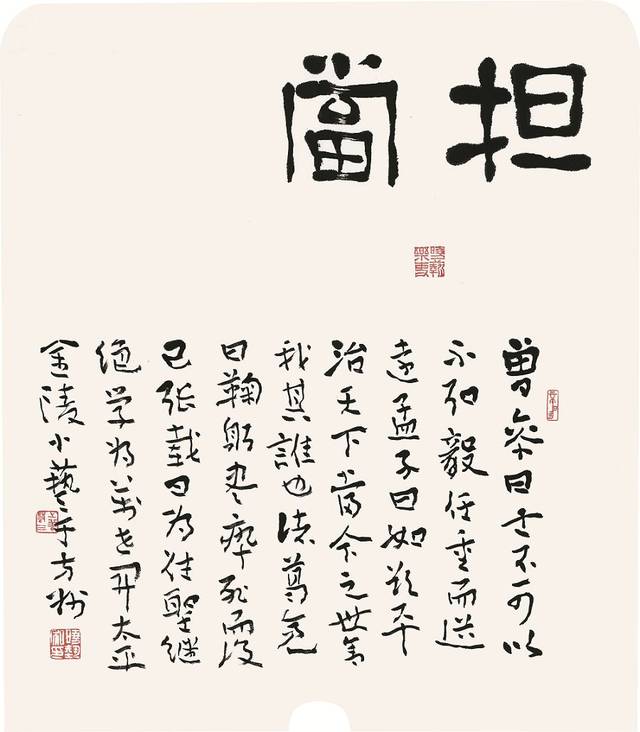 担當
曾參曰士不可以
不弘毅任重而道
遠孟子曰如欲平
治天下當今之世舍
我其誰也諸葛亮
曰鞠躬尽瘁死而後
已张載曰为往聖継
绝学为萬世開太平
金陵小藝